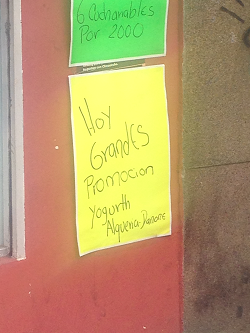 6 Cochanables
Por 2000
Hoy
GrandES
Promocion
Yogurth
Alqueria-Danone